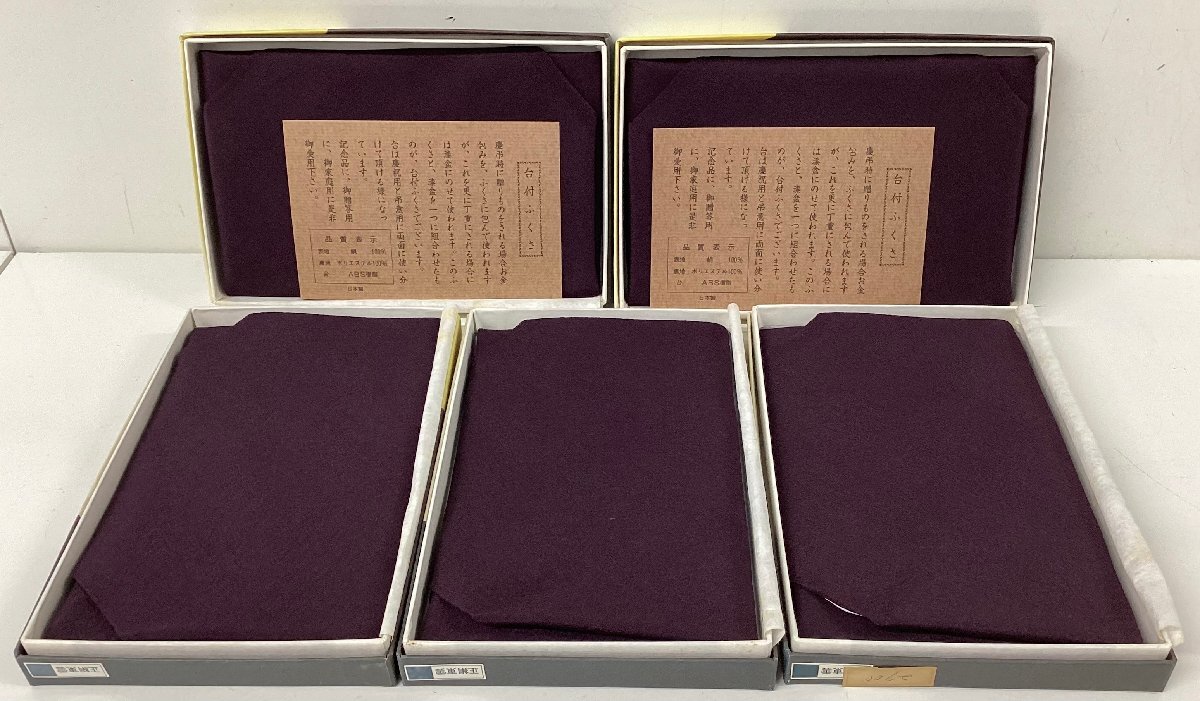 台付ふくさ
慶弔時に贈りものをされる場合お金
包みを、ふくさに包んで使われます
が、これを更に丁重にされる場合に
は漆盆にのせて使われます。このふ
くさと、漆盆を一つに組合わせたも
のが、台付ふくさでございます。
台は慶祝用と弔意用に両面に使い分
けて頂ける様になっ
ています。
記念品に、御贈答用
に、御家庭用に是非
御愛用下さい。
品質表示
表地 絹 100%
裏地 ポリエステル100%
台 ABS樹脂
日本製
台付ふくさ
慶弔時に贈りものをされる場合お金
包みを、ふくさに包んで使われます
が、これを更に丁重にされる場合に
は漆盆にのせて使われます。このふ
くさと、漆盆を一つに組合わせたも
のが、台付ふくさでございます。
台は慶祝用と弔意用に両面に使い分
けて頂ける様になっ
ています。
記念品に、御贈答用
に、御家庭用に是非
御愛用下さい。
品質表示
表地 絹 100%
裏地 ポリエステル100%
台 ABS樹脂
日本製
正絹東雲
正絹東雲
東雲